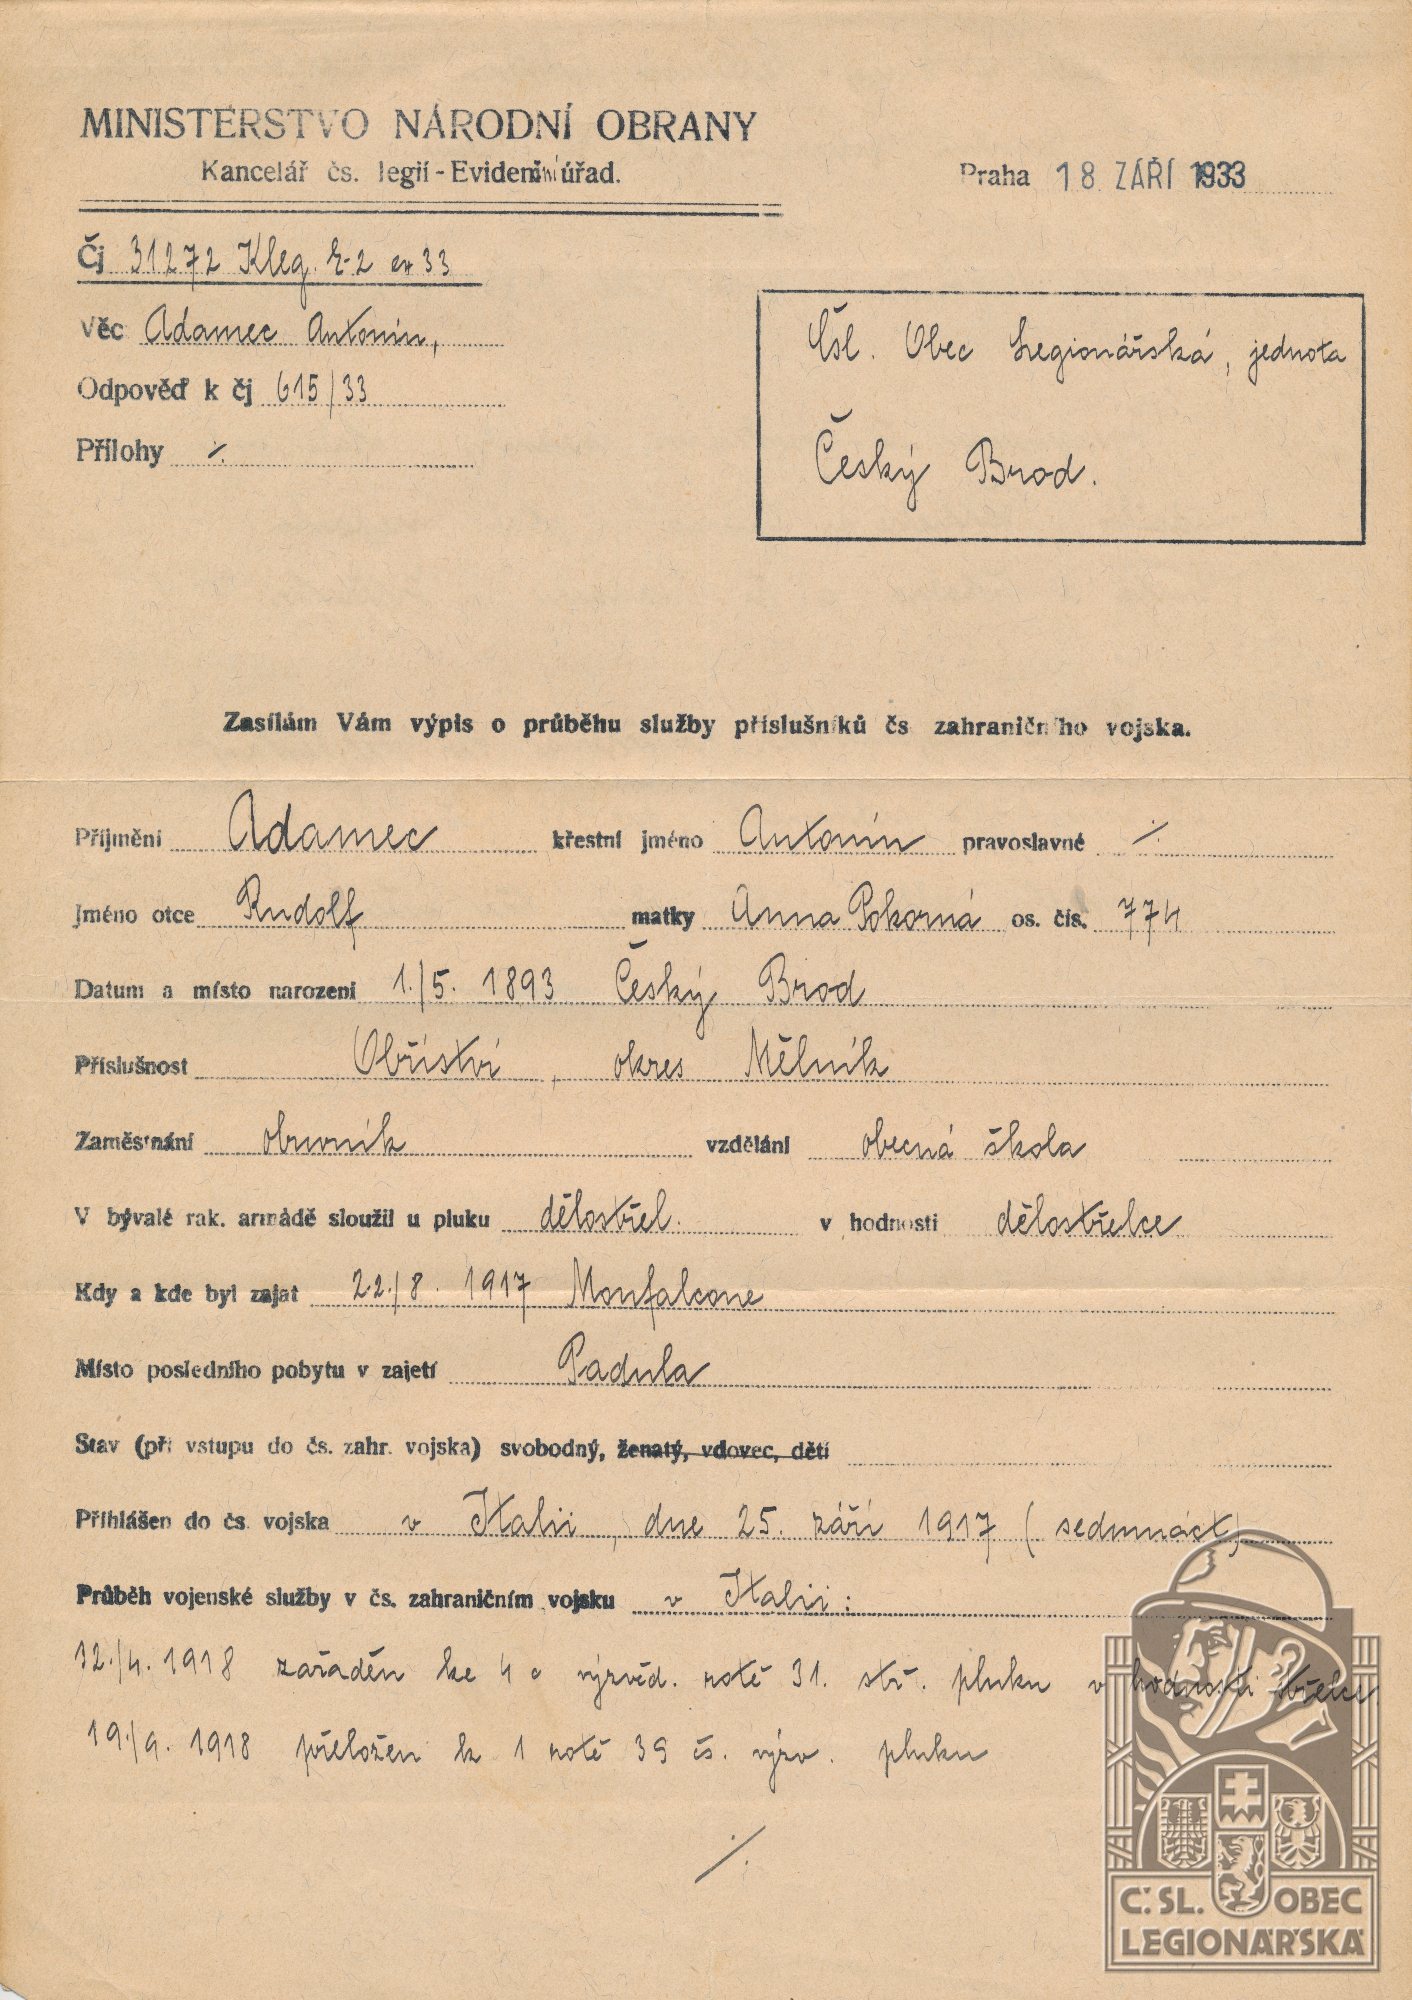 MINISTERSTVO NÁRODNÍ OBRANY
Kancelář čs. legií - Evidenční úřad.
Praha 18 ZÁŘÍ 1933
Čj 31272 Kleg. E-2 ex 33
Věc Adamec Antonín,
Odpověď k čj 615/33
Přílohy ·/.
Čsl. Obec Legionářská, jednota
Český Brod.
Zasílám Vám výpis o průběhu služby příslušníků čs zahraničního vojska.
Příjmení Adamec křestní jméno Antonín pravoslavné ·/.
Jméno otce Rudolf matky Anna Pokorná os. čís. 774
Datum a místo narození 1./5. 1893 Český Brod
Příslušnost Obříství, okres Mělník
Zaměstnání obuvník vzdělání obecná škola
V bývalé rak. armádě sloužil u pluku dělostřel. v hodnosti dělostřelce
Kdy a kde byl zajat 22./8. 1917 Monfalcone
Místo posledního pobytu v zajetí Padula
Stav (při vstupu do čs. zahr. vojska) svobodný, ženatý, vdovec, dětí
Přihlášen do čs. vojska v Italii, dne 25. září 1917 (sedmnáct)
Průběh vojenské služby v čs. zahraničním vojsku v Italii:
12./4. 1918 zařaděn ke 4 výzvěd. rotě 31. stř. pluku v hodnosti střelce
19./9. 1918 přeložen k 1 rotě 39 čs. výzv. pluku
·/.
Č.SL. OBEC
LEGIONÁŘSKÁ